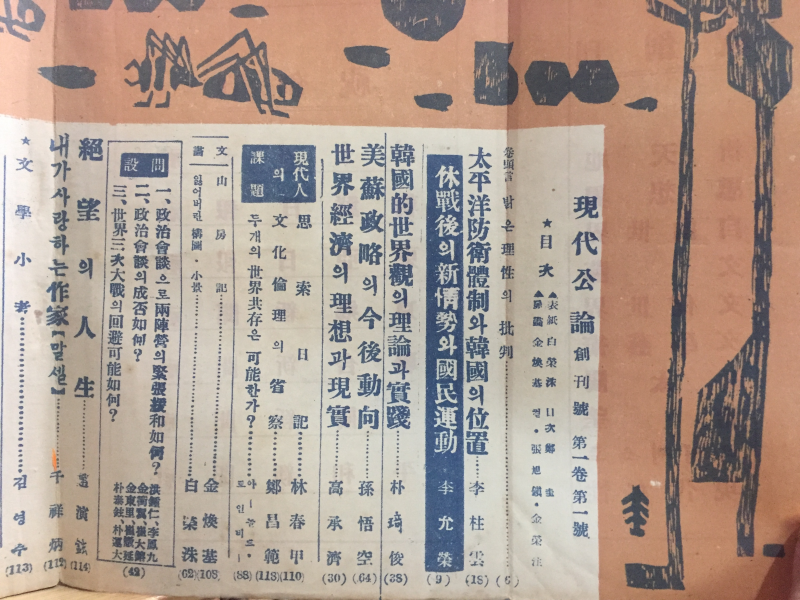 現代公論 創刊號 第一卷第一號
★目次
▲表紙 白榮洙 目次 鄭圭
金煥基 컷・張旭鎭・金榮注
卷頭言 밝은理性의批判……(6)
太平洋防衛體制와韓國의位置……李柱雲(18)
休戰後의新情勢와國民運動 李允榮(9)
韓國的世界觀의理論과實踐……朴琦俊(38)
美蘇政略의今後動向……孫悟空(64)
世界經濟의理想과現實……高承濟(30)
現代人의課題
思索日記……林春甲(110)
文化倫理의省察……鄭昌範(118)
두개의世界共存은可能한가?……아놀드・토인비(88)
文 山房記……金煥基(108)
畵 잃어버린構圖・小景……白榮洙(62)
設問
一、政治會談으로兩陣營의緊張緩和如何?
二、政治會談의成否如何?
三、世界三次大戰의回避可能如何?
朴泰鉉、朴運大
(42)
絕望의人生……(114)
내가사랑하는作家【말셀】……千祥炳(112)
★文學小考……김영수(113)